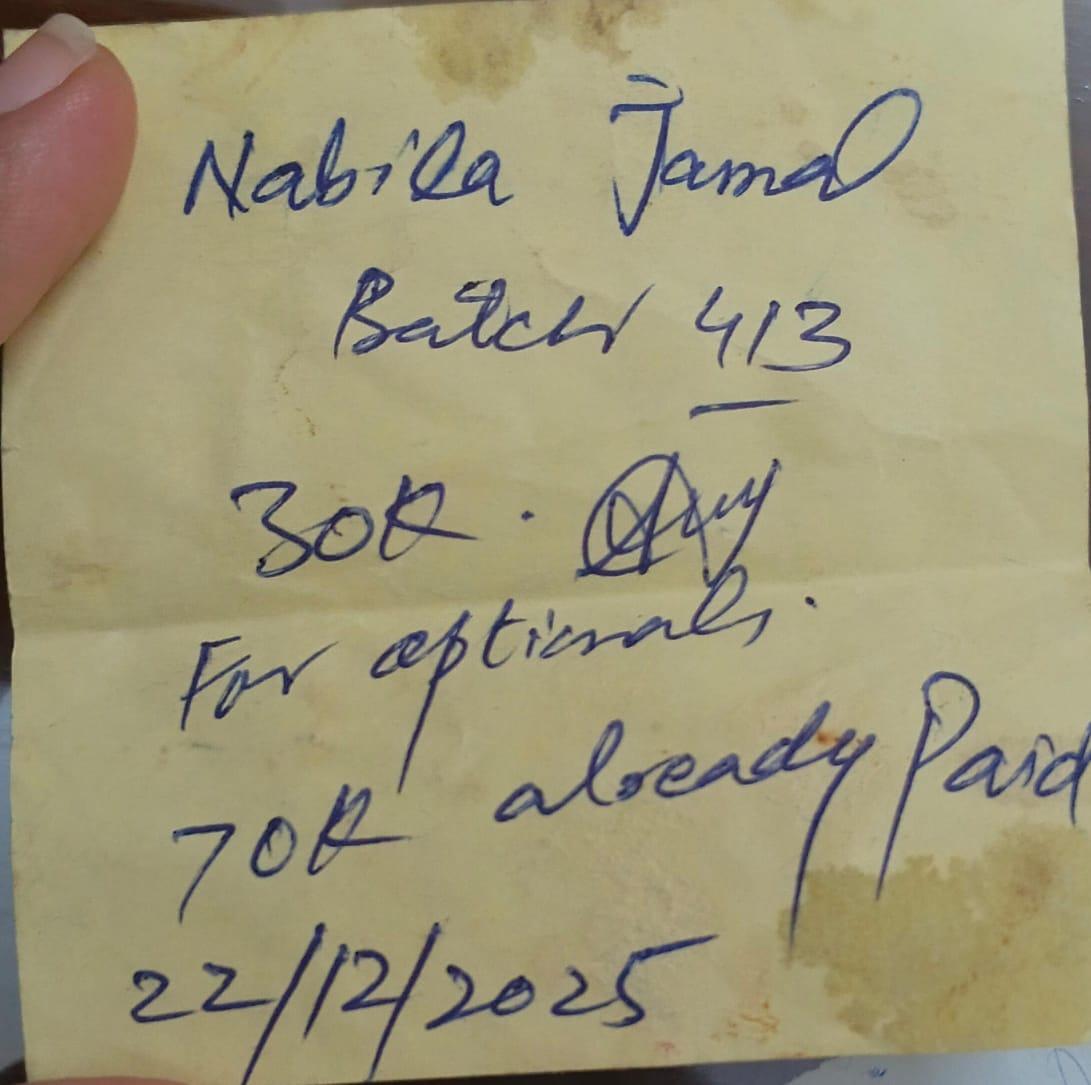 Nabila Jamal
Batch 413
30K.
For optionals.
70K already Paid
22/12/2025